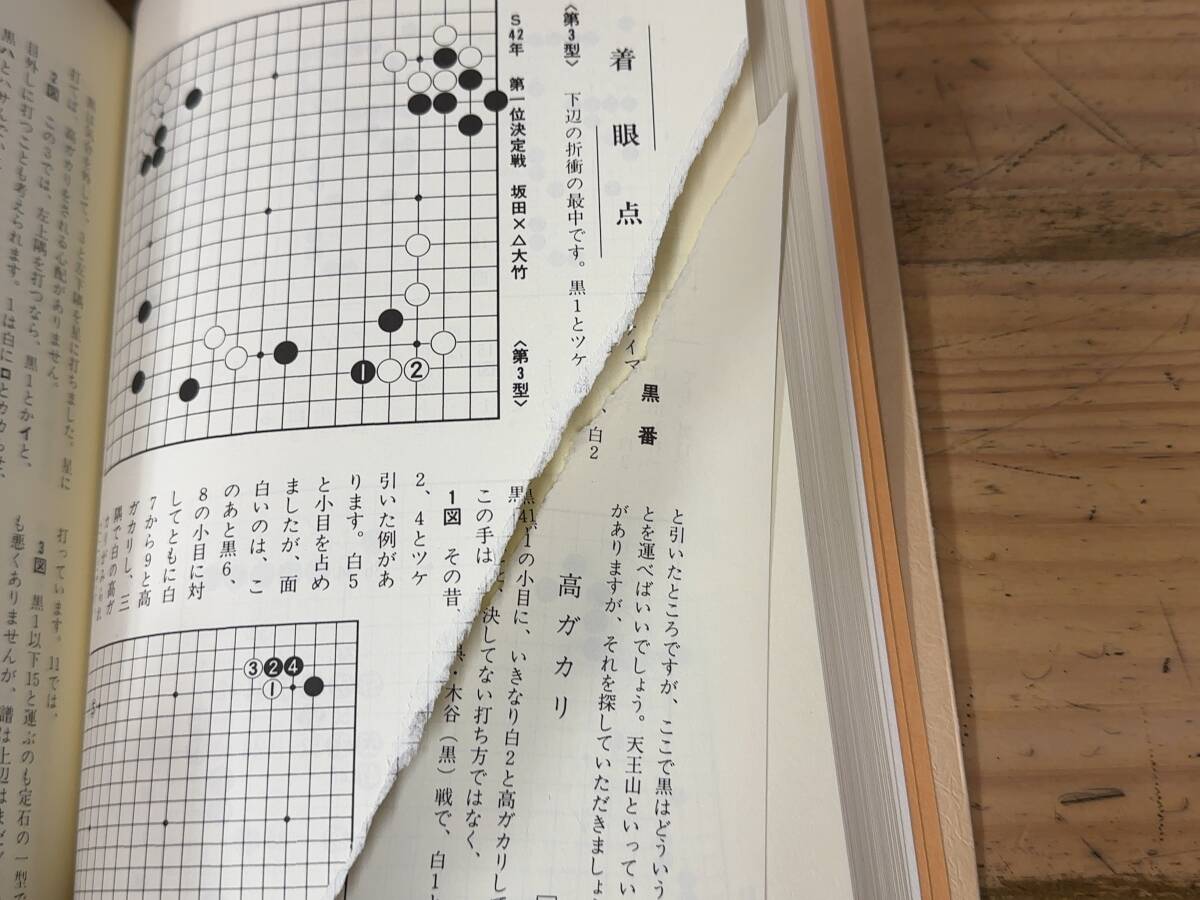 着眼点
黒番
〈第3型〉 下辺の折衝の最中です。黒1とツケ
、白2
と引いたところですが、ここで黒はどういう
とを運べばいいでしょう。天王山といってい
がありますが、それを探していただきましょ
S42年 第一位決定戦 坂田×△大竹 〈第3型〉
1
2
高ガカリ
の小目に、いきなり白2と高ガカリし
この手は
決してない打ち方ではなく、
1図 その昔、
・木谷(黒)戦で、白1と
2、4とツケ
引いた例があ
ります。白5
と小目を占め
ましたが、面
白いのは、こ
のあと黒6、
8の小目に対
してともに白
7から9と高
ガカリし、三
隅で白の高ガ
3
2
4
1
3と左下隅を星に打ちました。星に
打てば、高ガカリをされる心配がありません。
2図 この3では、左上隅を打つなら、黒1とかイと、
目外しに打つことも考えられます。1は白にロとカカっせ、
打っています。11では、
3図 黒1以下15と運ぶのも定石の一型で
も悪くありませんが、譜は上辺はまだ